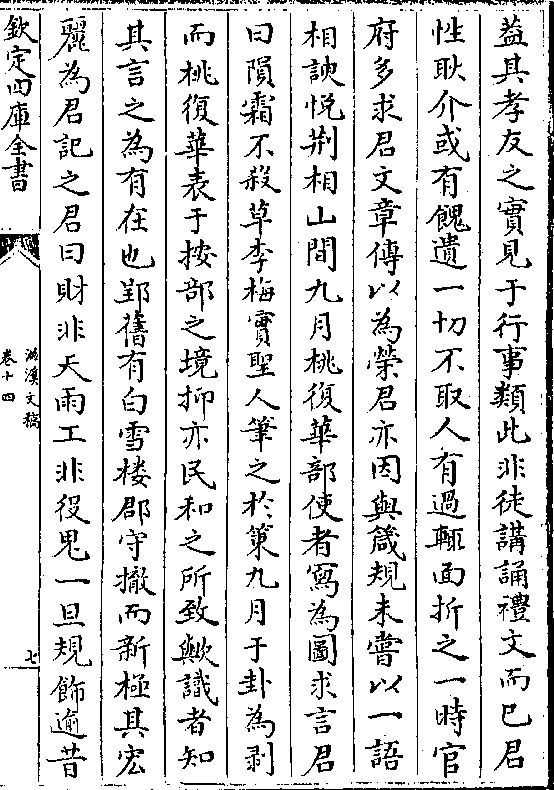 葢其孝友之實見于行事類此非徒講誦禮文而已君
性耿介或有餽遺一切不取人有過輒面折之一時官
府多求君文章傳以為榮君亦因與箴規未嘗以一語
相諛悦荆相山間九月桃復華部使者寫為圖求言君
曰隕霜不殺草李梅實聖人筆之於策九月于卦為剥
而桃復華表于按部之境抑亦民和之所致歟識者知
其言之為有在也郢舊有白雪楼郡守撤而新極其宏
麗為君記之君曰財非天雨工非役鬼一旦規飾逾昔
欽定四庫全書
滋溪文稿
卷十四
七